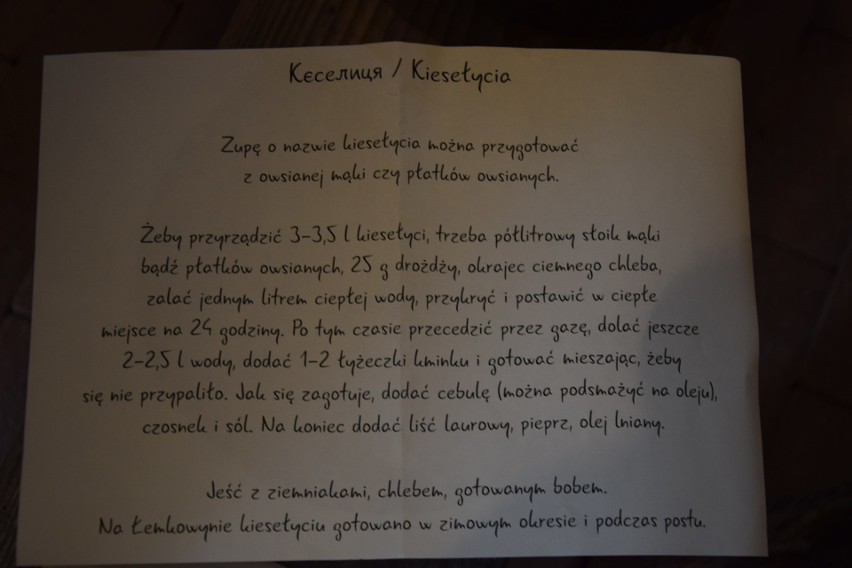 Кєселиця / Kiesełycia
Zupę o nazwie kiesełycia można przygotować
z owsianej mąki czy płatków owsianych.
Żeby przyrządzić 3-3,5 l kiesełyci, trzeba półlitrowy słoik mąki
bądź płatków owsianych, 25 g drożdży, okrajec ciemnego chleba,
zalać jednym litrem ciepłej wody, przykryć i postawić w ciepłe
miejsce na 24 godziny. Po tym czasie przecedzić przez gazę, dolać jeszcze
2-2,5 l wody, dodać 1-2 łyżeczki kminku i gotować mieszając, żeby
się nie przypaliło. Jak się zagotuje, dodać cebulę (można podsmażyć na oleju),
czosnek i sól. Na koniec dodać liść laurowy, pieprz, olej lniany.
Jeść z ziemniakami, chlebem, gotowanym bobem.
Na Łemkowynie kiesełyciu gotowano w zimowym okresie i podczas postu.